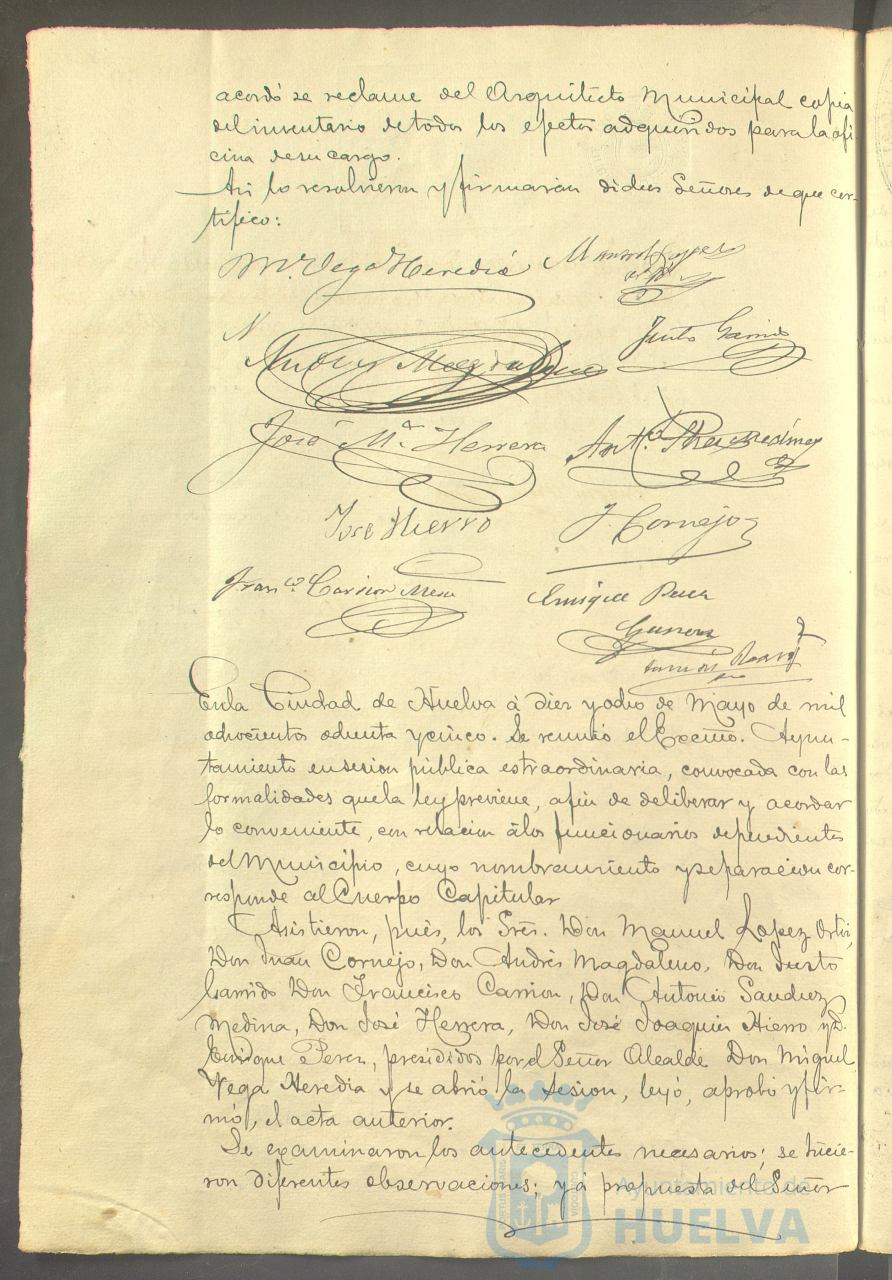 acordó se reclame del Arquitecto Municipal copia
del inventario de todos los efectos adquiridos para la ofi-
cina de su cargo.
Asi lo resolvieron y firmarán dichos Señores de que cer-
tifico:
M. Vega Heredia Manuel Lopez
Andres Magdaleno Justo Garrido
José Mª Herrera Antº Sanchez Medina
José Hierro J. Cornejo
Francº Carrion Mesa Enrique Perez
En la Ciudad de Huelva á diez y ocho de Mayo de mil
ochocientos ochenta y cinco. Se reunió el Excmo. Ayun-
tamiento en sesion pública estraordinaria, convocada con las
formalidades que la ley previene, afin de deliberar y acordar
lo conveniente, con relacion á los funcionarios dependientes
del Municipio, cuyo nombramiento y separacion cor-
responde al Cuerpo Capitular
Asistieron, pués, los Sres. Don Manuel Lopez Ortiz,
Don Juan Cornejo, Don Andrés Magdaleno, Don Justo
Garrido Don Francisco Carrion, Don Antonio Sanchez
Medina, Don José Herrera, Don José Joaquin Hierro y D.
Enrique Perez, presididos por el Señor Alcalde Don Miguel
Vega Heredia y se abrió la Sesion, leyó, aprobó y fir-
mó, el acta anterior.
Se examinaron los antecedentes necesarios; se hicie-
ron diferentes observaciones; y á propuesta del Señor
Ayuntamiento de
HUELVA